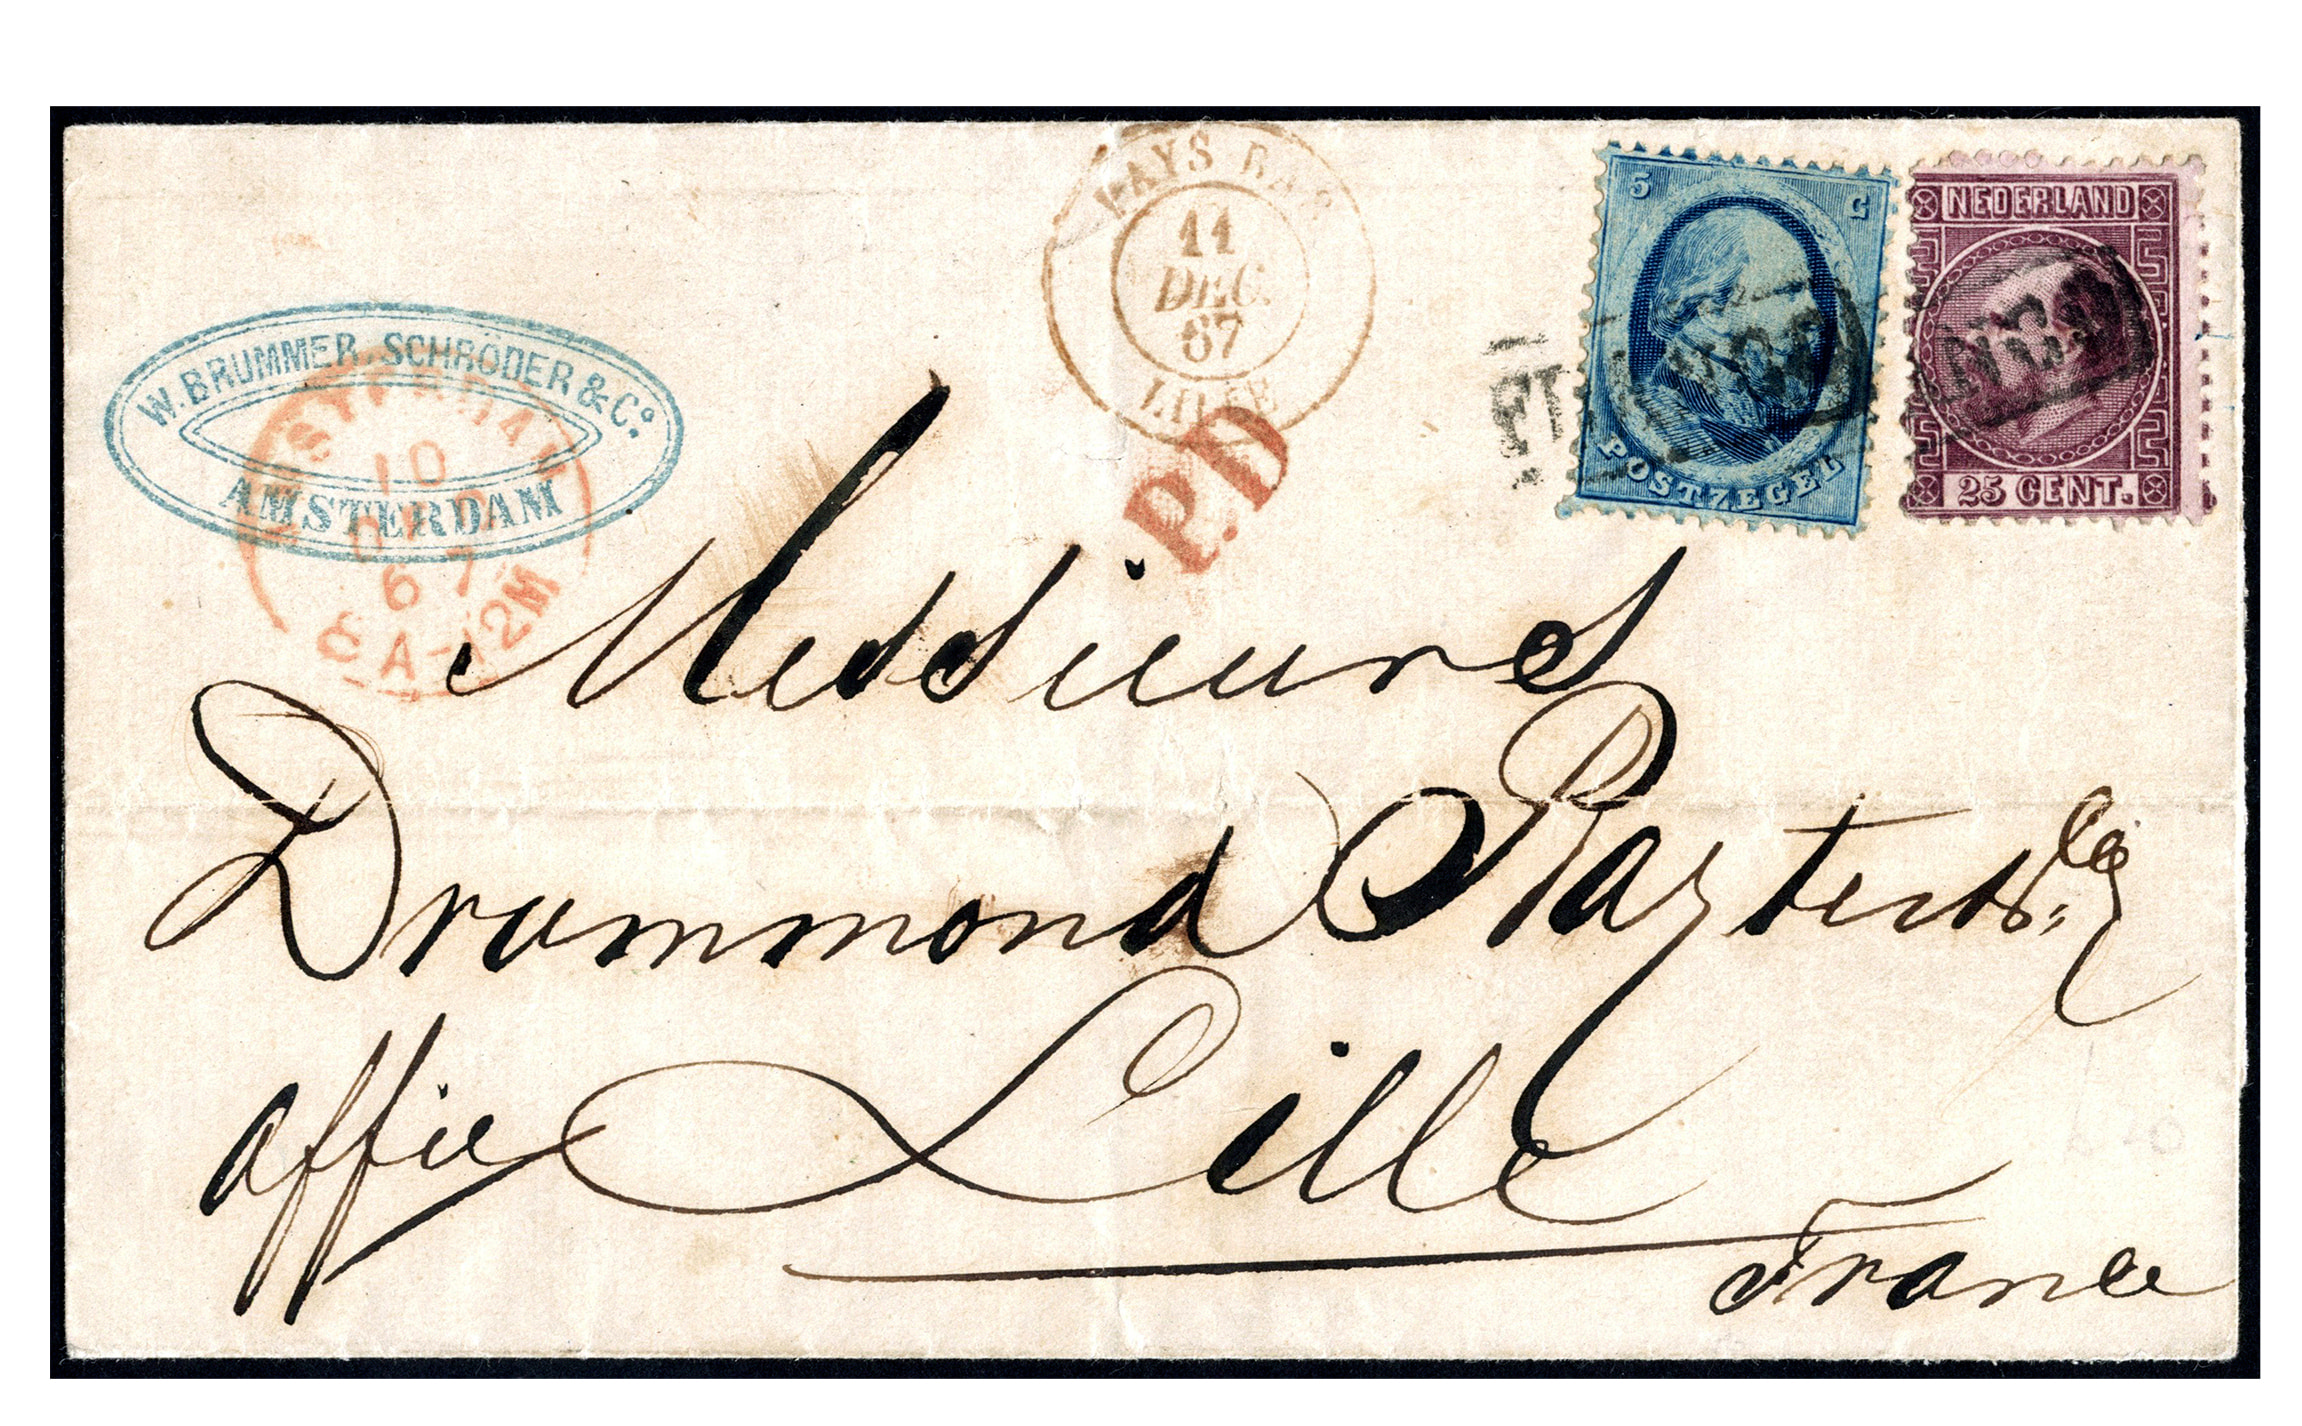 W. BRUMMER, SCHRÖDER & Co.
AMSTERDAM
10
67
8A-12M
PAYS BAS
11
DEC.
67
LILLE
P.D.
5 C
POSTZEGEL
NEDERLAND
25 CENT.
FRANCO
Messieurs
Drummond
Lille
France